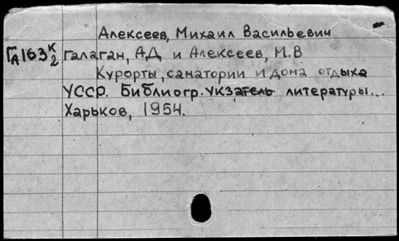 Алексеев, Михаил Васильевич
Гл163 К/2 Галаган, А.Д. и Алексеев, М.В
Курорты, санатории и дома отдыха
УССР. Библиогр. указатель литературы...
Харьков, 1954.